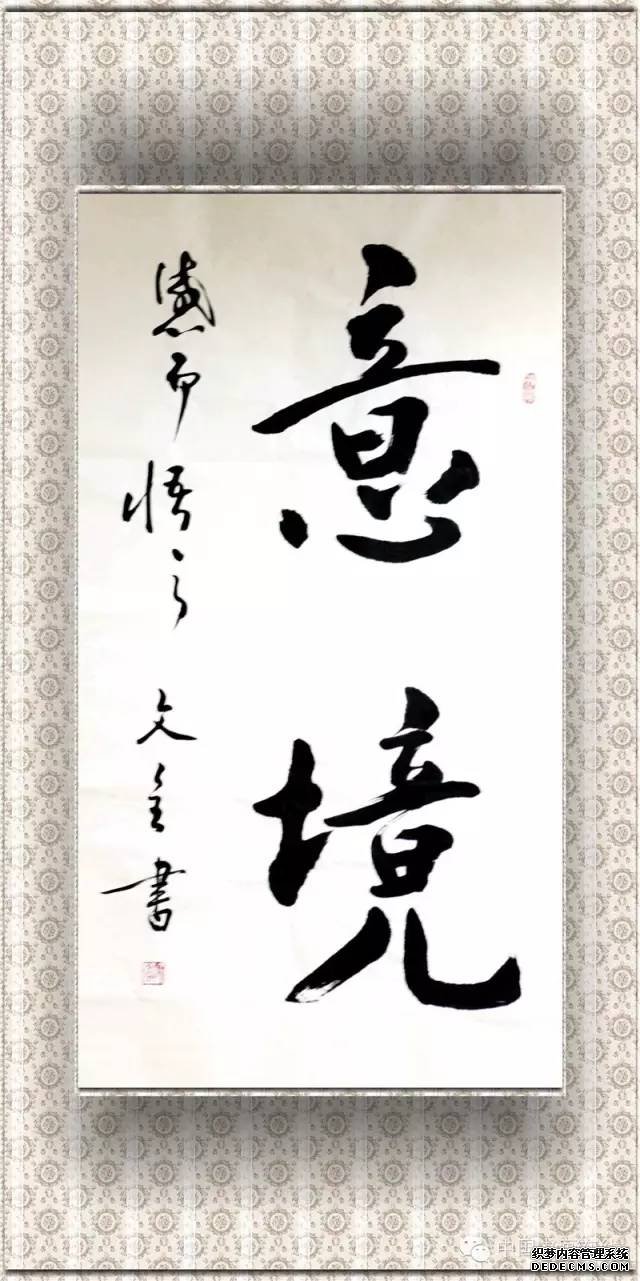 意境
感而悟之
文全書
织梦内容管理系统
DEDECMS.COM